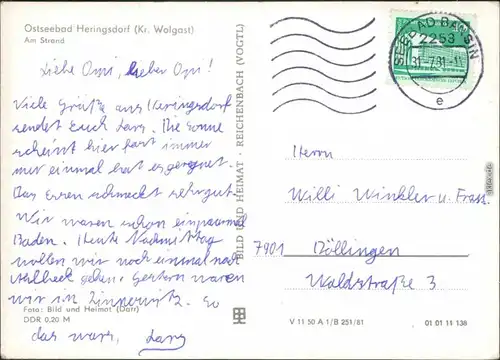 Ostseebad Heringsdorf (Kr. Wolgast)
Am Strand
Liebe Omi, lieber Opi!
Viele Grüße aus Heringsdorf
sendet Euch Lars. Die Sonne
scheint hier fast immer
nur einmal hat es geregnet.
Das Essen schmeckt sehr gut.
Wir waren schon ein paarmal
Baden. Heute Nachmittag
wollen wir noch einmal nach
Ahlbeck gehen. Gestern waren
wir in Zinnowitz. So
Foto: Bild und Heimat (Darr)
DDR 0,20 M
das wars, Lars
BILD UND HEIMAT · REICHENBACH (VOGTL)
SEEBAD BANSIN
2253
31.-7.81-1
e
Herrn
Willi Winkler u. Frau
7901 Döllingen
Waldstraße 3
V 11 50 A 1/B 251/81
01 01 11 138